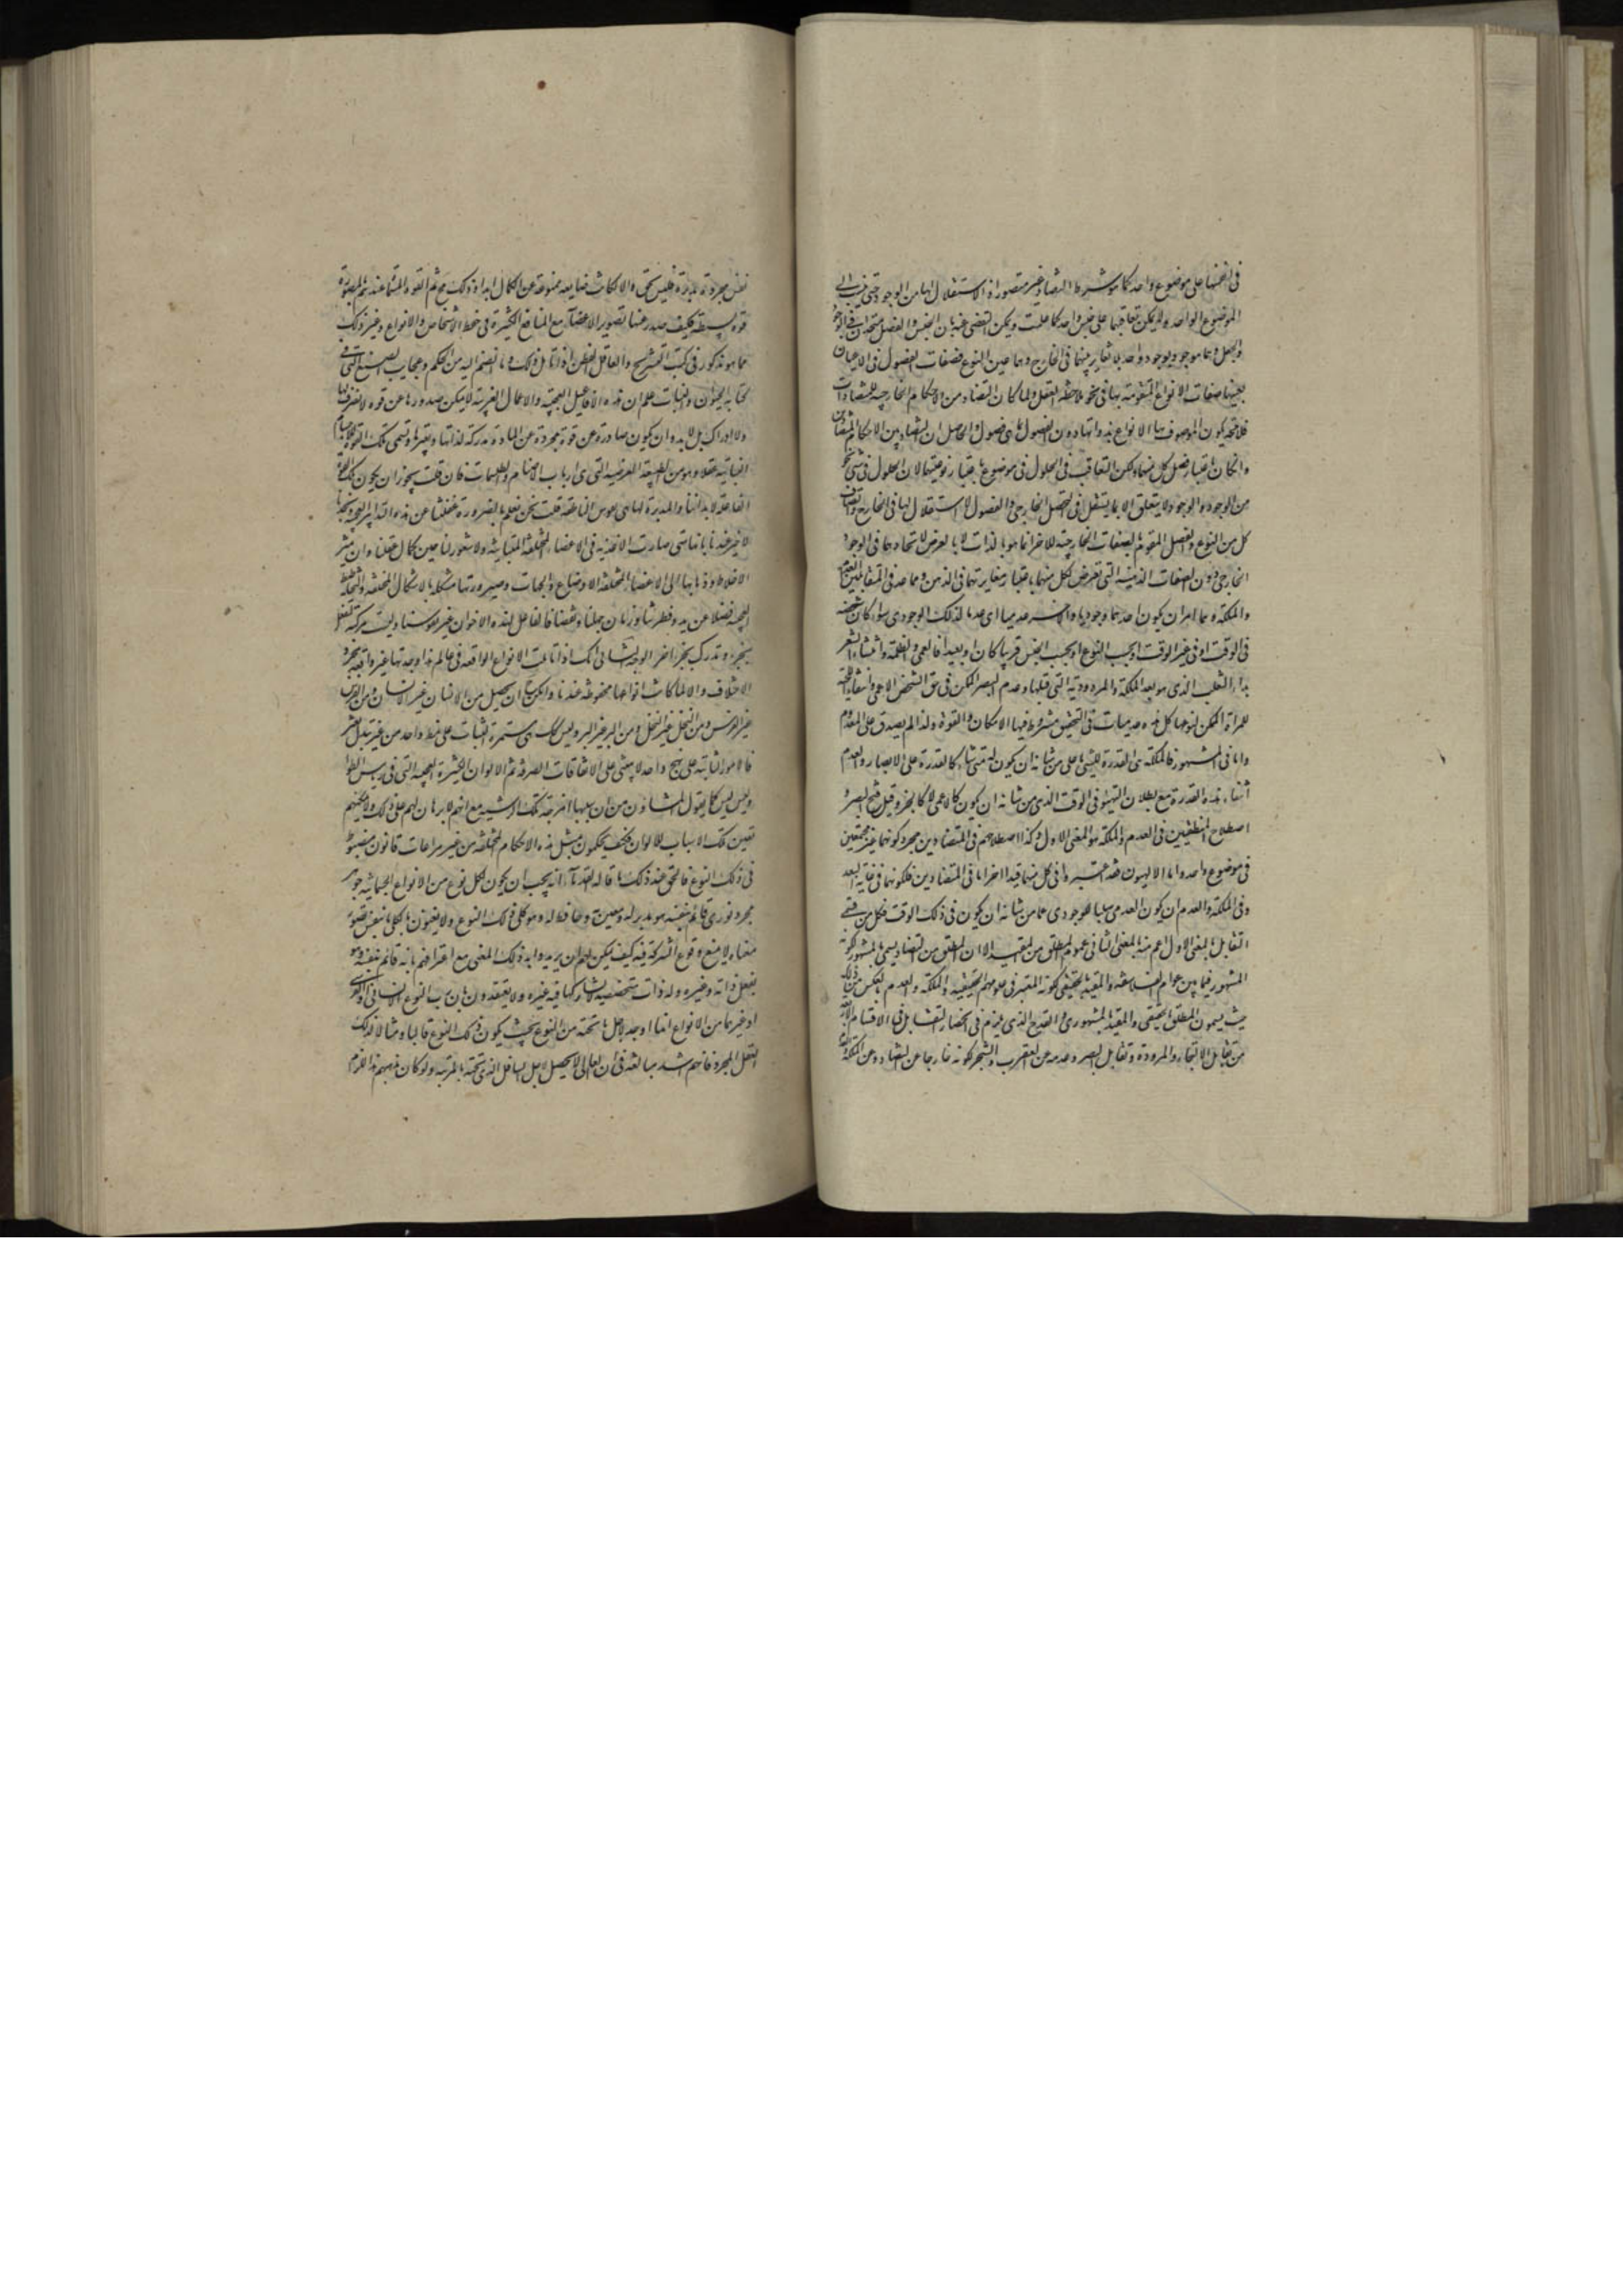 في انفسها على موضوع واحد كما هو شرط التضاد غير متصور اذ لا استقلال لها من الوجود حتى
الموضوع الواحد ولا يمكن تعاقبها على جنس واحد كما علمت ويمكن التفصي عنه بان الجنس والفصل متحدان في الوجود
والجعل وهما موجود بوجود واحد بلا تغاير بينهما في الخارج وهما عين النوع فصفات الفصول في الاعيان
بعينها صفات الانواع المتقومة بها في نحو ملاحظة العقل ولما كان التضاد من الاحكام الخارجية للمتضادات
فلا محة يكون الموصوف بها الانواع بذواتها دون الفصول بما هي فصول والحاصل ان التضاد من الاحكام
وان كان باعتبار فصل كل منهما ولكن التعاقب في الحلول في موضوع باعتبار نوعيتهما لان الحلول في شيء نحو
من الوجود والوجود لا يتعلق الا بما يستقل في التحصل الخارجي والفصول لا استقلال لها في الخارج واتصاف
كل من النوع والفصل المقوم بالصفات الخارجية للاخر انما هو بالذات لا بالعرض لاتحادهما في الوجود
الخارجي دون الصفات الذهنية التي تعرض لكل منهما باعتبار مغايرتهما في الذهن ومما عد في المتقابلين العدم
والملكة وهما امران يكون احدهما وجوديا والاخر عدميا اي عدما لذلك الوجودي سواء كان بحسب شخصه
في الوقت او في غير الوقت او بحسب النوع او بحسب الجنس قريبا كان او بعيدا فالعمى والظلمة وانتثار الشعر
بداء الثعلب الذي هو بعد الملكة والمرودية التي قبلها وعدم البصر الممكن في حق الشخص الاعمى وانتفاء اللحية
للمراة الممكن لنوعها كل هذه عدميات في التحقيق مشروط فيها الامكان والقوة ولذا لم يصدق على المعدوم
واما في المشهور فالملكة هي القدرة للشيء على ما من شانه ان يكون له متى شاء كالقدرة على الابصار والعدم
انتفاء هذه القدرة مع بطلان التهيؤ في الوقت الذي من شانه ان يكون كالاعمى لا كالجرو قبل فتح البصر و
اصطلاح المنطقيين في العدم والملكة هو المعنى الاول وكذا اصطلاحهم في المتضادين مجرد كونهما غير مجتمعين
في موضوع واحد واما الالهيون فقد اعتبروا في كل منهما قيدا اخر اما في المتضادين فكونهما في غاية البعد
وفي الملكة والعدم ان يكون العدمي سلبا للوجودي عما من شانه ان يكون في ذلك الوقت فكل من قسمي
التقابل بالمعنى الاول اعم منه بالمعنى الثاني عموم المطلق من المقيد الا ان المطلق من التضاد يسمى بالمشهوري لكونه
المشهور فيما بين عوام الفلاسفة والمقيد بالحقيقي لكونه المعتبر في علومهم الحقيقية والملكة والعدم بالعكس من ذلك
حيث يسمون المطلق بالحقيقي والمقيد بالمشهوري والقدح الذي يلزم في انحصار التقابل في الاقسام الاربعة
من تقابل الالتحاء والمرودة وتقابل البصر وعدمه عن العقرب او الشجر لكونه خارجا عن التضاد وعن الملكة
نفس مجردة مدبرة فليس كك والا لكانت ضايعة ممنوعة عن الكمال ابدا وذلك مح ثم القوة المسماة عندهم بالمصورة
قوة بسيطة فكيف صدر عنها تصوير الاعضاء مع المنافع الكثيرة في حفظ الاشخاص والانواع وغير ذلك
مما هو مذكور في كتب التشريح والعاقل الفطن اذا تامل ذلك وما انضم اليه من الحكم وعجايب الصنع التي
كتابية الحيوان والنبات علم ان هذه الافاعيل العجيبة والاعمال الغريبة لا يمكن صدورها عن قوة لا تصرف لها
ولا ادراك بل لا بد وان يكون صادرة عن قوة مجردة عن المادة مدركة لذاتها ولغيرها وتسمى تلك القوة المدبرة للاجسام
النباتية عقلا وهو من الطبقة العرضية التي هي ارباب الاصنام والطلسمات فان قلت يجوز ان يكون تلك القوة
الفاعلة لابداننا والمدبرة لها هي نفوسنا الناطقة قلت نحن نعلم بالضرورة غفلتنا عن هذه التدابير العجيبة
لا خبر عندنا بانها متى صارت الاغذية في الاعضاء المختلفة المتباينة ولا شعور لنا حين كمال عقلنا
الاخلاط وذهابها الى الاعضاء المختلفة الاوضاع والجهات وصيرورتها متشكلة بالاشكال المختلفة والتخاطيط
العجيبة فضلا عن بدو فطرتنا وزمان جهلنا ونقصنا فالفاعل لهذه الاخوان غير نفوسنا وليست مركبة تفعل
بجزء وتدرك بجزء اخر الوجه الثاني انك اذا تاملت الانواع الواقعة في عالمنا هذا وجدتها غير واقعة بمجرد
الاتفاق والا لما كانت انواعها محفوظة عندنا وامكن ان يحصل من الانسان غير الانسان ومن الفرس
غير الفرس ومن النخل غير النخل ومن البر غير البر وليس كك بل هي مستمرة الثبات على نمط واحد من غير تبدل وتغير
فالامور الثابتة على نهج واحد لا يبتني على الاتفاقات الصرفة ثم الالوان الكثيرة العجيبة التي في رياش الطواويس
ليس كما يقول المشاؤن من ان سببها امزجة تلك الريشة مع انهم لا برهان لهم على ذلك ولا يمكنهم
تعيين تلك الاسباب للالوان فكيف يحكمون بمثل هذه الاحكام المختلفة من غير مراعات قانون مضبوط
في ذلك النوع فالحق عند ذلك ما قاله القدماء انه يجب ان يكون لكل نوع من الانواع الجسمانية جوهر
مجرد نوري قائم بنفسه هو مدبر له ومعين به وحافظ له وهو كلي ذلك النوع ولا يعنون بالكلي ما نفس تصور
معناه لا يمنع وقوع الشركة فيه كيف يمكن لهم ان يريدوا به ذلك المعنى مع اعترافهم بانه قائم بنفسه وهو
يعقل ذاته وغيره وله ذات متخصصة لا يشاركها فيه غيره ولا يعتقدون بان رب النوع الانساني او الفرسي
او غيرهما من الانواع انما اوجد لاجل ما تحته من النوع بحيث يكون ذلك النوع قالبا ومثالا لذلك
العقل المجرد فانهم اشد مبالغة في ان العالي لا يحصل لاجل السافل الذي تحته بالمرتبة ولو كان مذهبهم هذا للزم